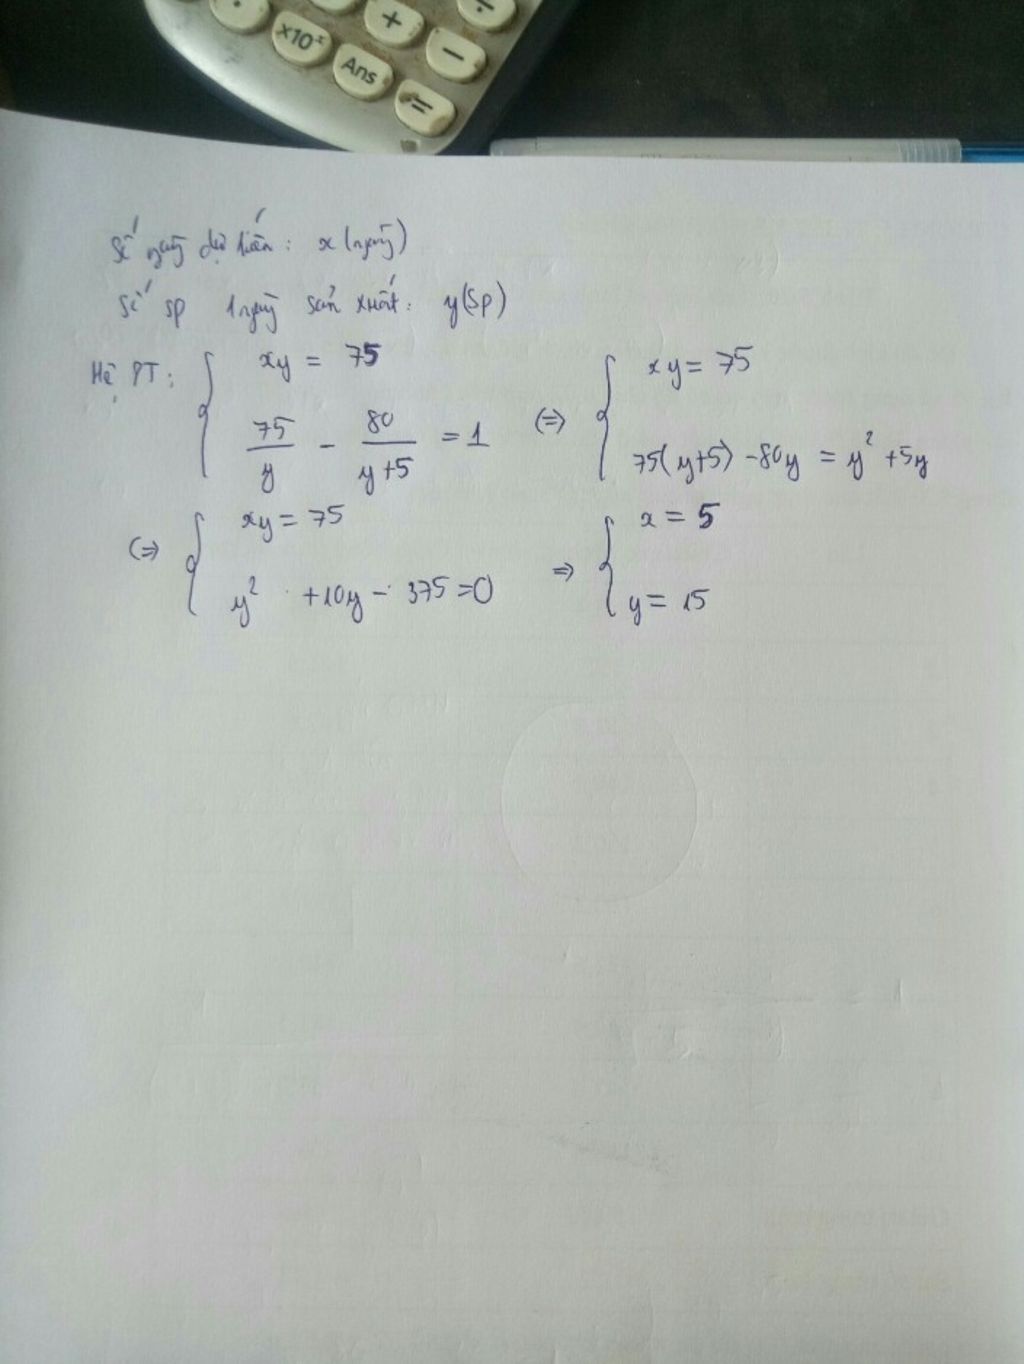 ×10ˣ
+
÷
−
Ans
=
Số ngày dự kiến: x (ngày)
Số sp 1 ngày sản xuất: y (sp)
Hệ PT: { xy = 75 ; 75/y − 80/(y+5) = 1 (=) { xy = 75 ; 75(y+5) − 80y = y² + 5y
(=) { xy = 75 ; y² + 10y − 375 = 0 => { x = 5 ; y = 15